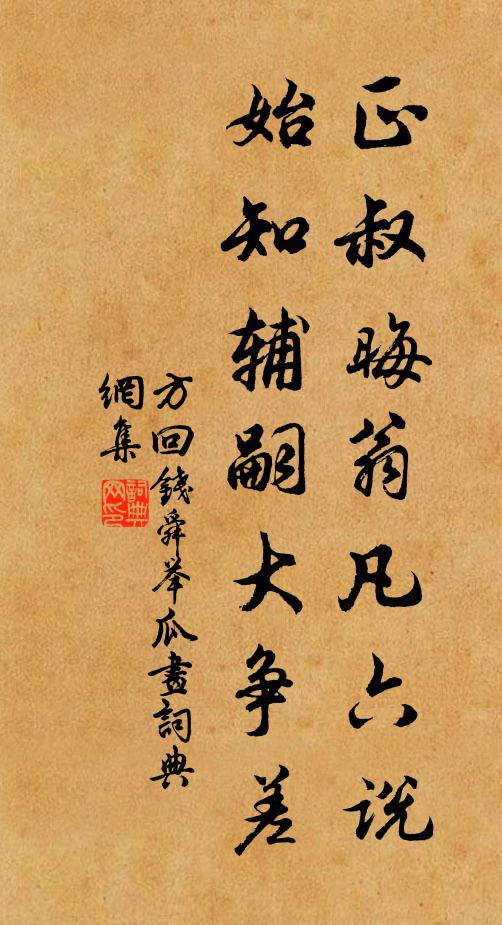 正叔晦翁凡六说
始知辅嗣大争差
方回錢舜举瓜畫詞典
網集
詞典
网印